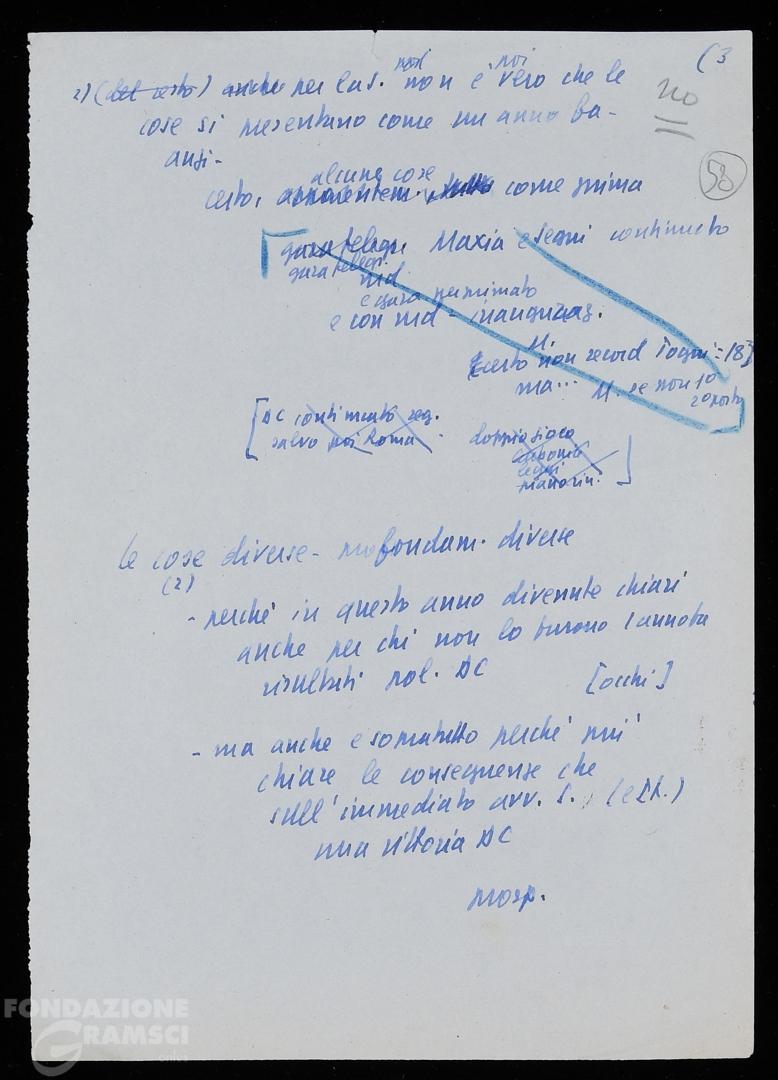 (3
no
58
2) (del certo) anche per la S. non è poi vero che le
cose si presentano come un anno fa -
anzi -
certo, alcune cose come prima
gara telegr. Maxia e Segni continuato
gara telegr.
md
e gara per primato
e con md - inauguraz.
M.
[certo non record Togni = 18]
ma... M. se non 1º
2º posto
[DC continuato reg.
salvo poi Roma -
doppio gioco
Segni
]
le cose diverse - profondam. diverse
(2)
- perché in questo anno divenute chiari
anche per chi non lo furono l'annata
risultati pol. DC
[occhi]
- ma anche e sopratutto perché più
chiare le conseguenze che
sull'immediato avv. S. (e It.)
una vittoria DC
prosp.
FONDAZIONE
GRAMSCI
onlus